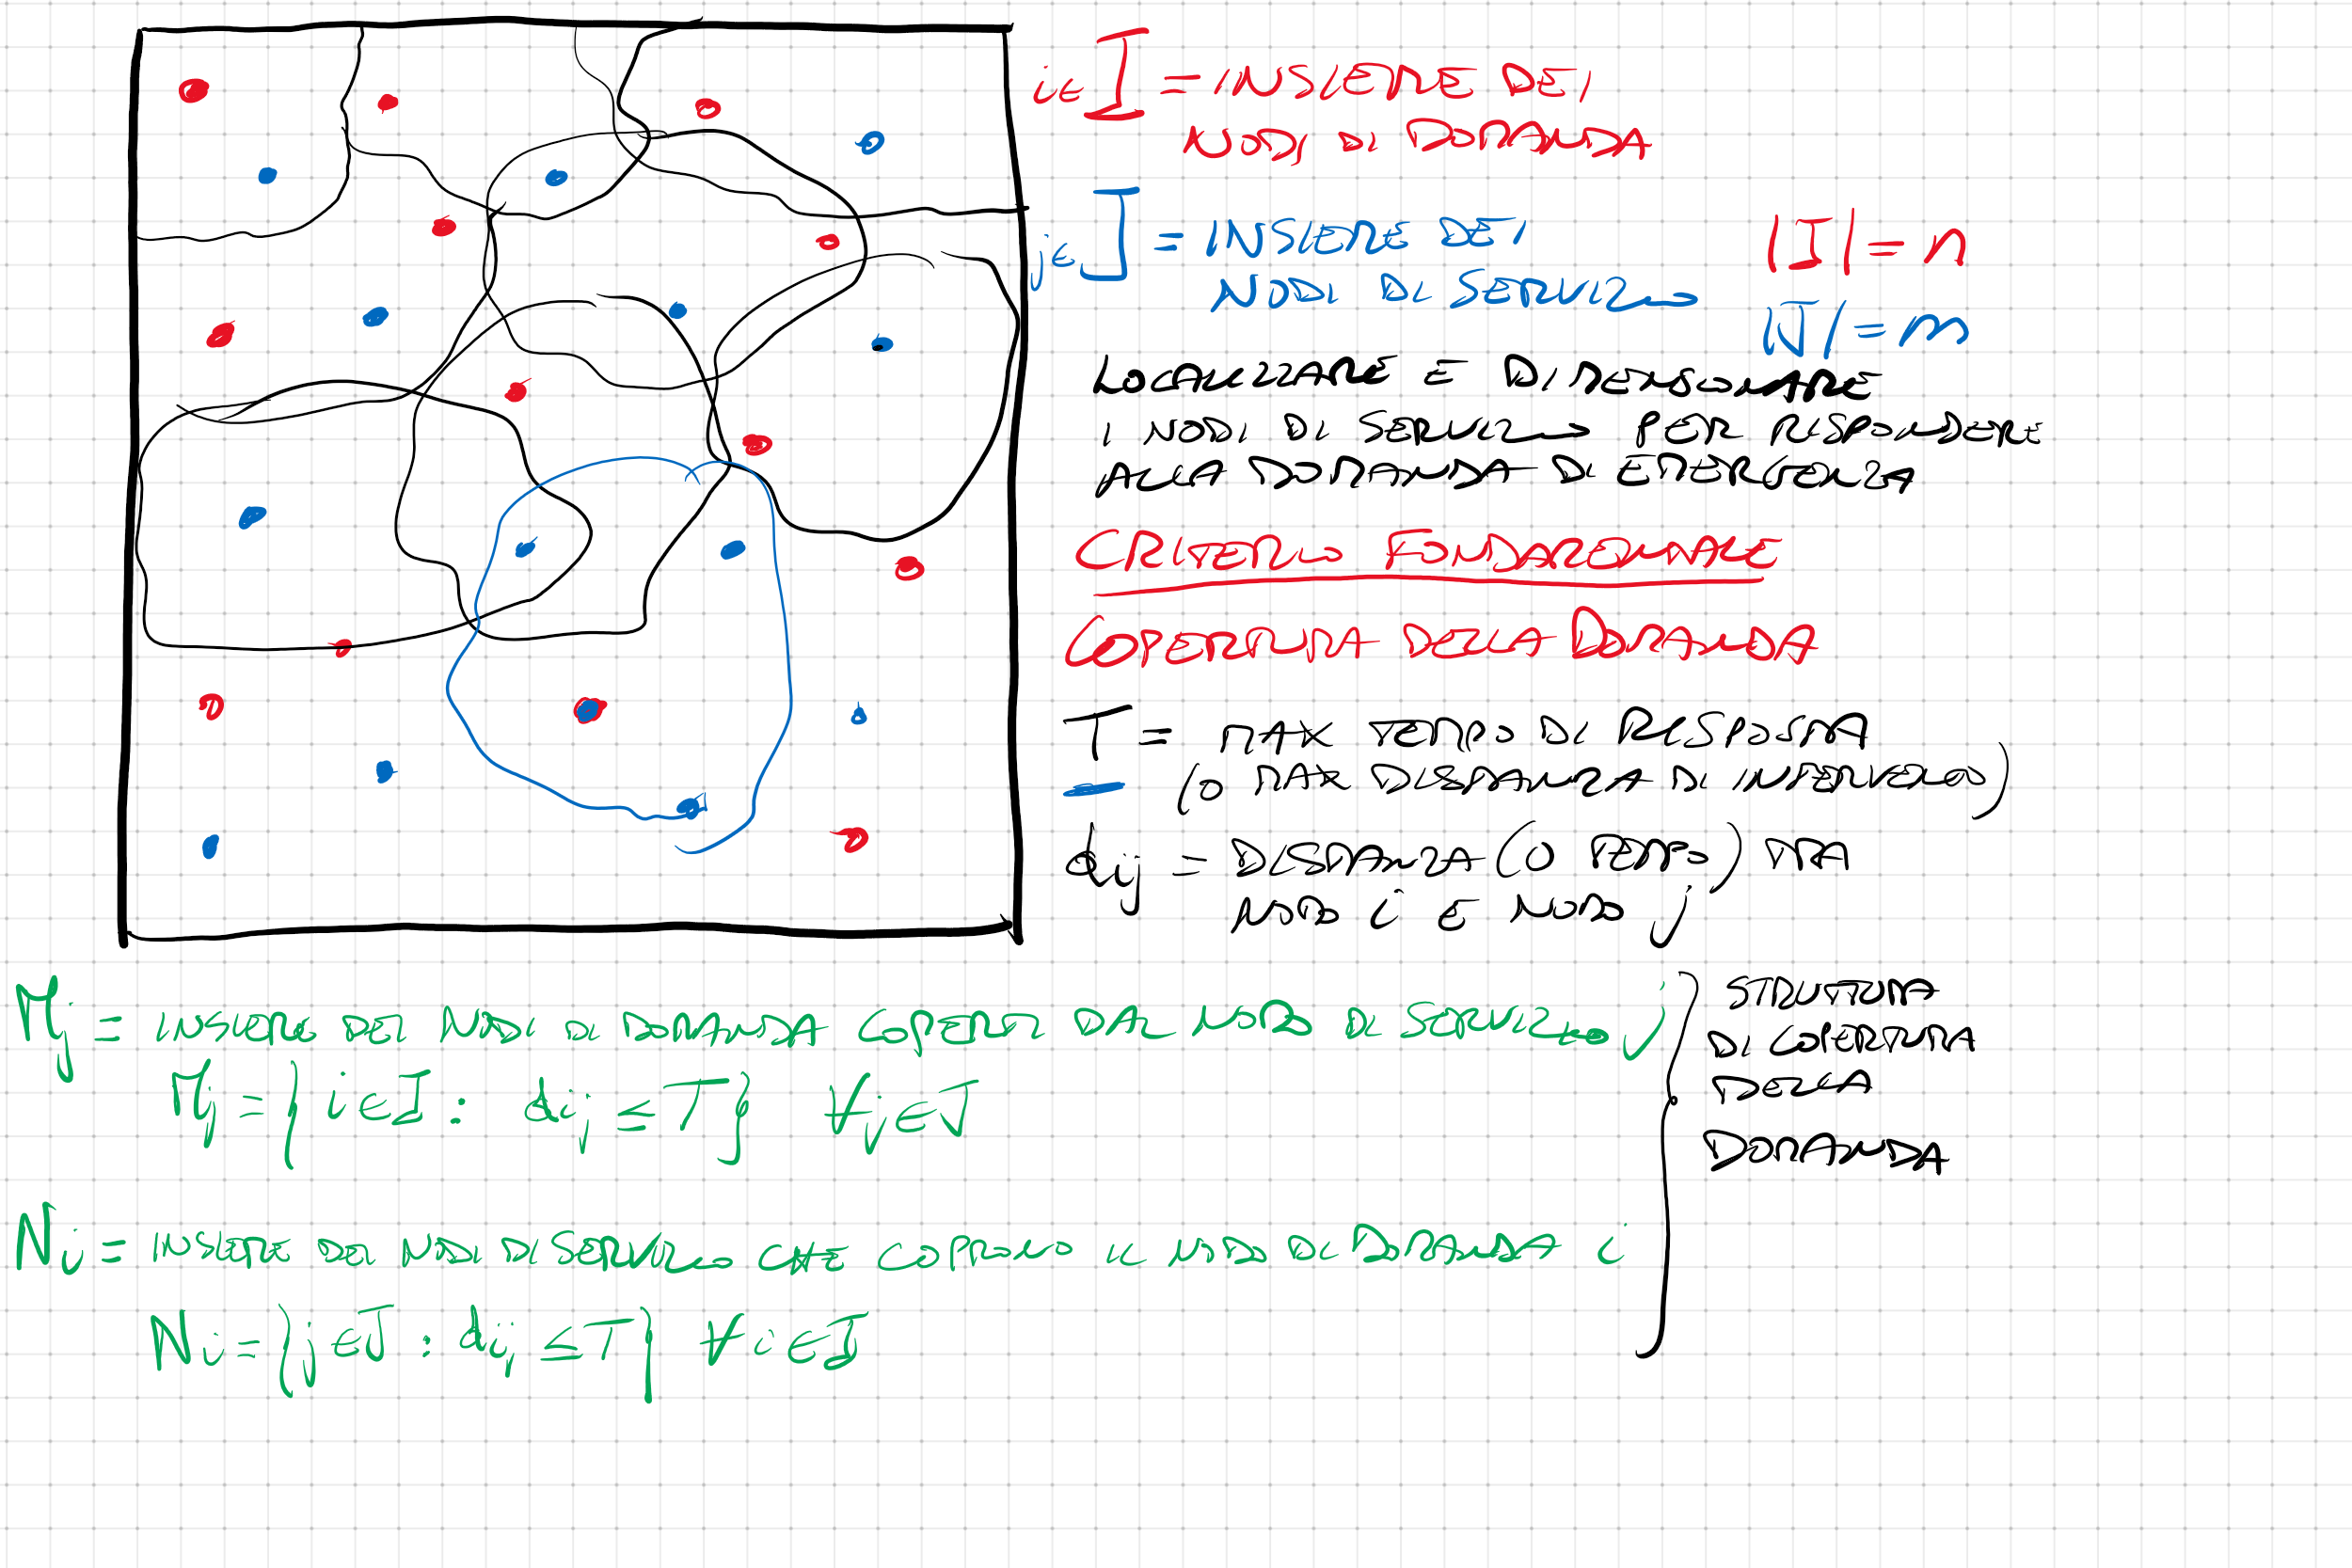 i∈ I = INSIEME DEI
NODI DI DOMANDA
j∈ J = INSIEME DEI
NODI DI SERVIZIO
|I| = n
|J| = m
LOCALIZZARE E DIMENSIONARE
I NODI DI SERVIZIO PER RISPONDERE
ALLA DOMANDA DI EMERGENZA
CRITERIO FONDAMENTALE
COPERTURA DELLA DOMANDA
T = MAX TEMPO DI RISPOSTA
(O MAX DISTANZA DI INTERVENTO)
dij = DISTANZA (O TEMPO) TRA
NODO i E NODO j
Mj = INSIEME DEI NODI DI DOMANDA COPERTI DAL NODO DI SERVIZIO j
Mj = { i ∈ I : dij ≤ T } ∀ j ∈ J
STRUTTURA
DI COPERTURA
DELLA
DOMANDA
Ni = INSIEME DEI NODI DI SERVIZIO CHE COPRONO IL NODO DI DOMANDA i
Ni = { j ∈ J : dij ≤ T } ∀ i ∈ I